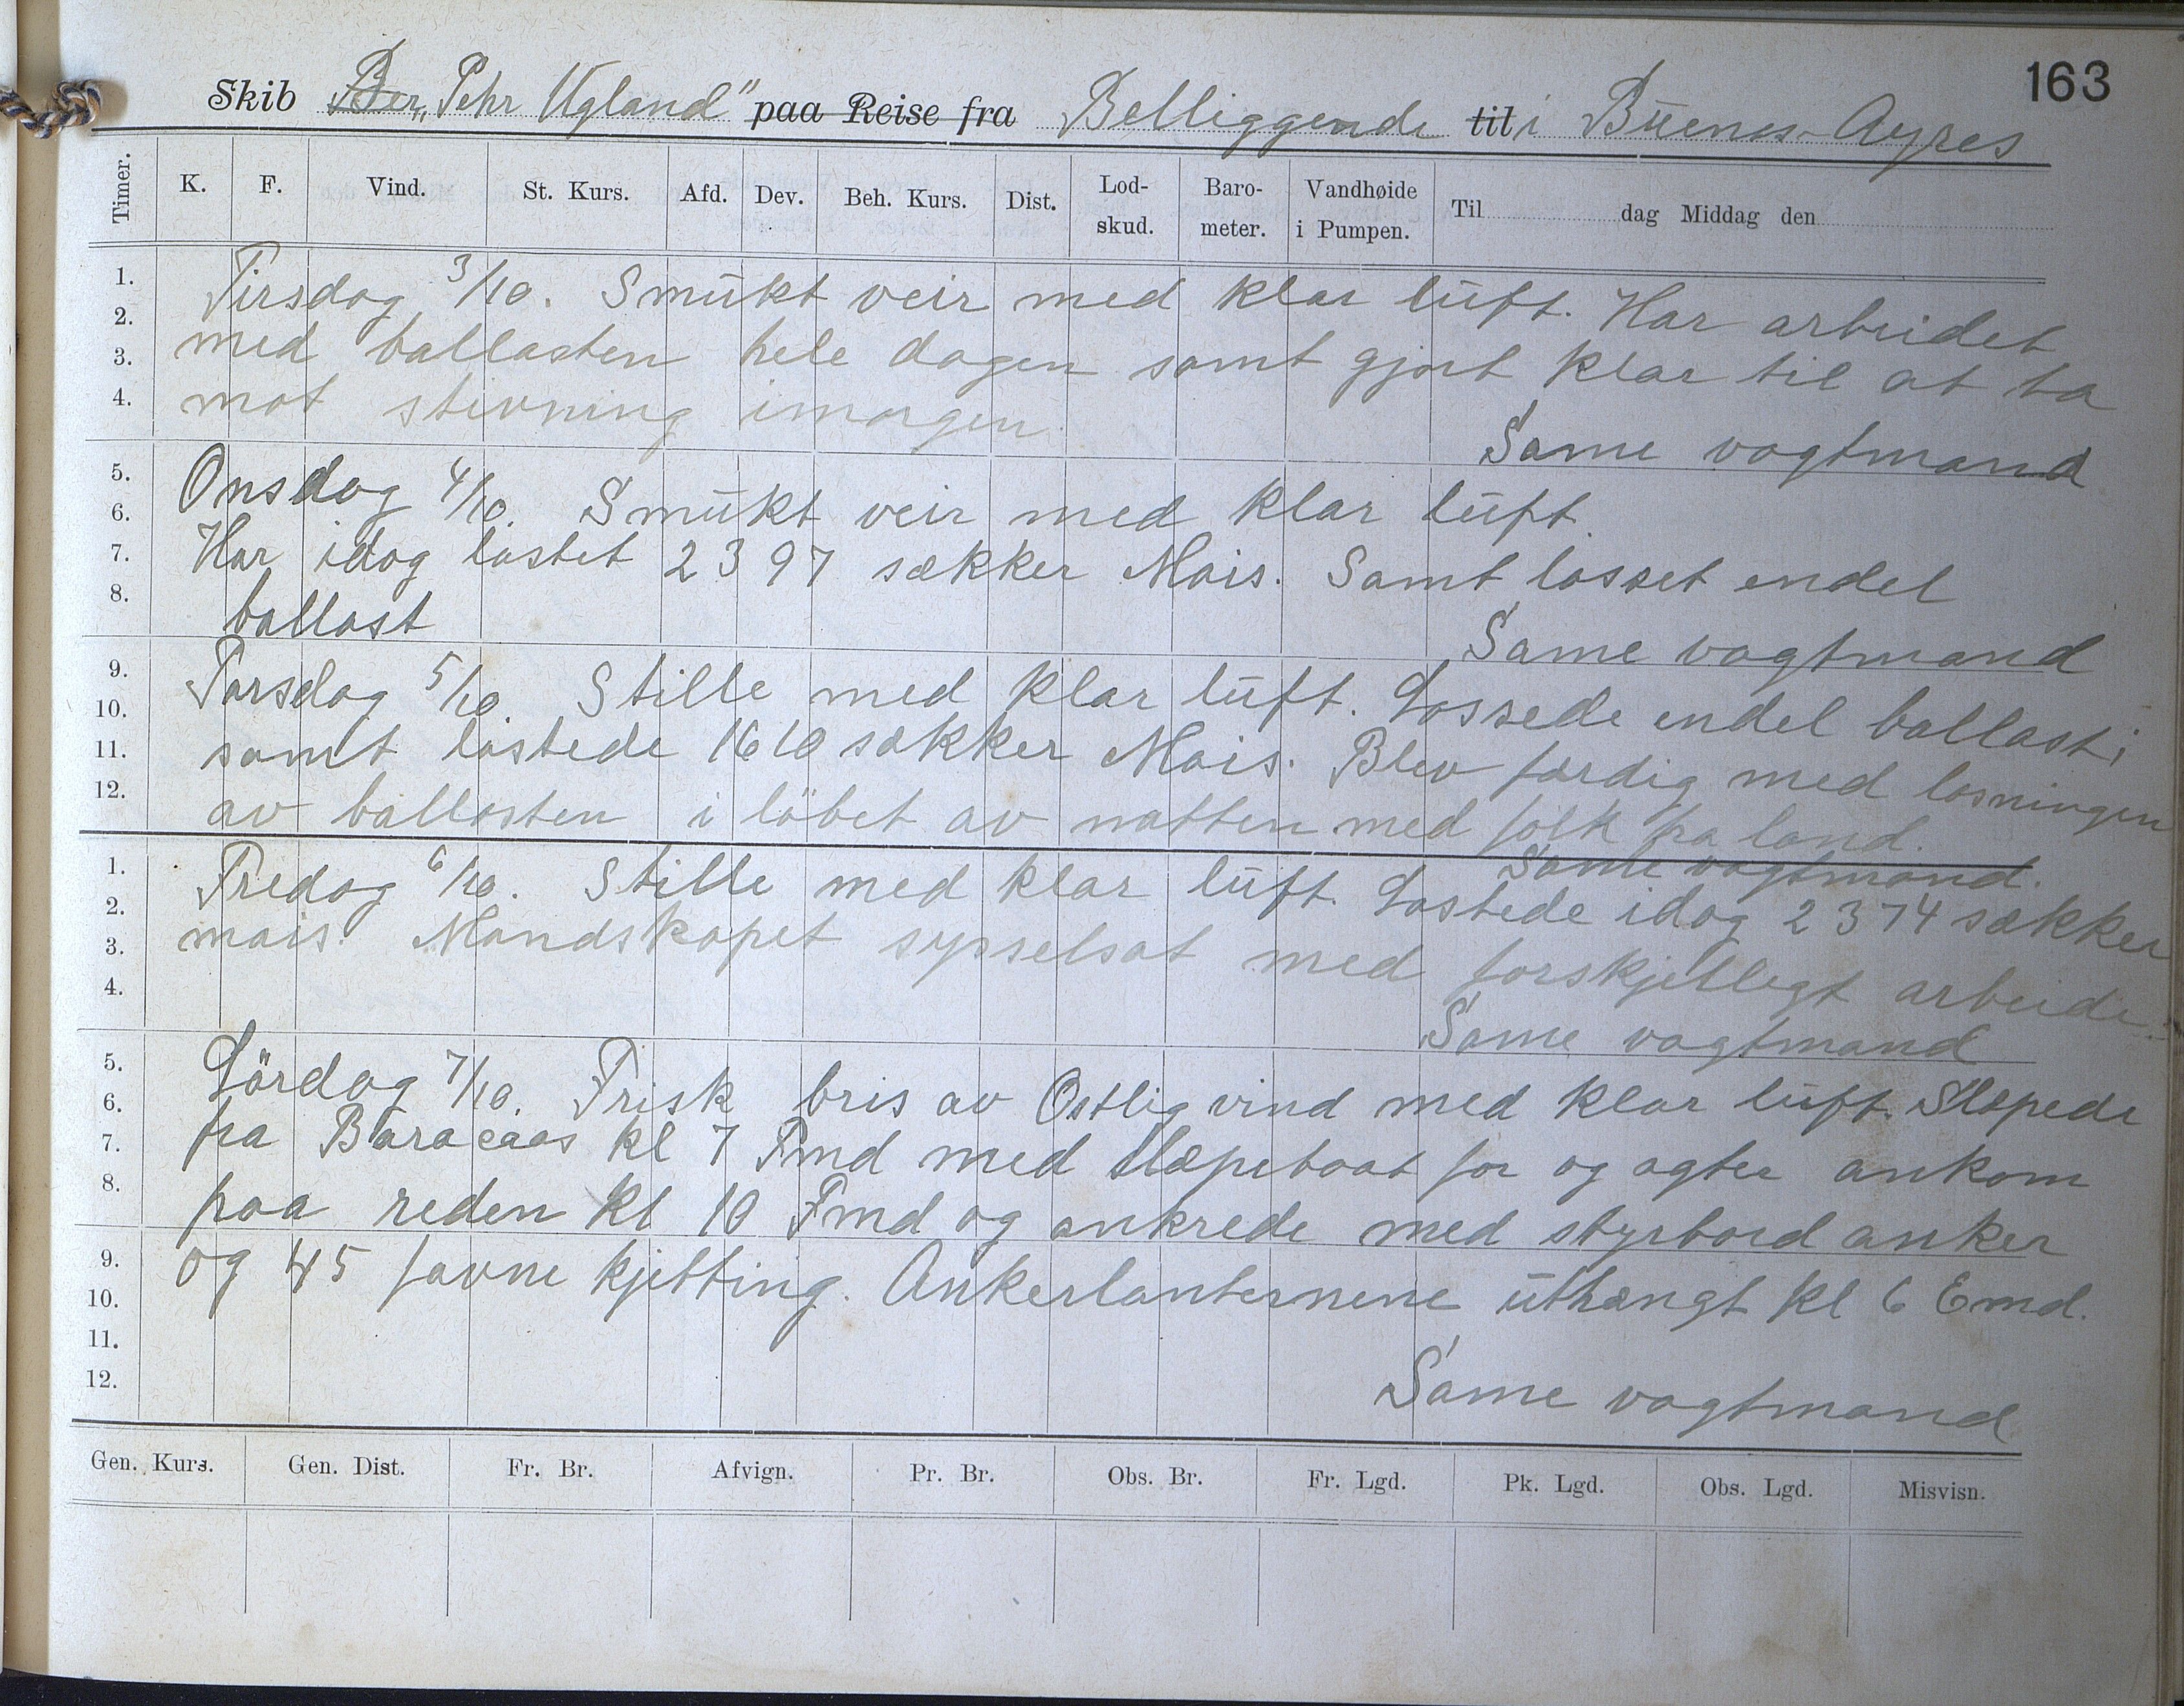 163
Skib ~~Ber~~ „Pehr Ugland" ~~paa Reise fra~~ Belliggende ~~til~~ i Buenos-Ayres
Timer. K. F. Vind. St. Kurs. Afd. Dev. Beh. Kurs. Dist. Lod-skud. Baro-meter. Vandhøide i Pumpen. Til dag Middag den
1. Tirsdag 3/10. Smukt veir med klar luft. Har arbeidet
2.
3. med ballasten hele dagen samt gjort klar til at ta
4. mot stivning imorgen
Same vagtmand
5. Onsdag 4/10. Smukt veir med klar luft.
6.
7. Har idag lastet 2397 sækker Mais. Samt losset endel
8. ballast
Same vagtmand
9. Torsdag 5/10. Stille med klar luft. Lossede endel ballast i
10.
11. samt lastede 1610 sækker Mais. Blev færdig med losningen
12. av ballasten i löbet av natten med folk fra land.
Same vagtmand.
1. Fredag 6/10. Stille med klar luft. Lastede idag 2374 sækker
2.
3. mais. Mandskapet sysselsat med forskjelligt arbeide.
4.
Same vagtmand
5. Lördag 7/10. Frisk bris av Ostlig vind med klar luft. Slæpede
6.
7. fra Baracaas kl 7 Fmd med slæpebaat for og agter ankom
8. paa reden kl 10 Fmd og ankrede med styrbord anker
9. og 45 favne kjetting. Ankerlanternene uthængt kl 6 Emd.
10.
11.
12.
Same vagtmand
Gen. Kurs. Gen. Dist. Fr. Br. Afvign. Pr. Br. Obs. Br. Fr. Lgd. Pk. Lgd. Obs. Lgd. Misvisn.